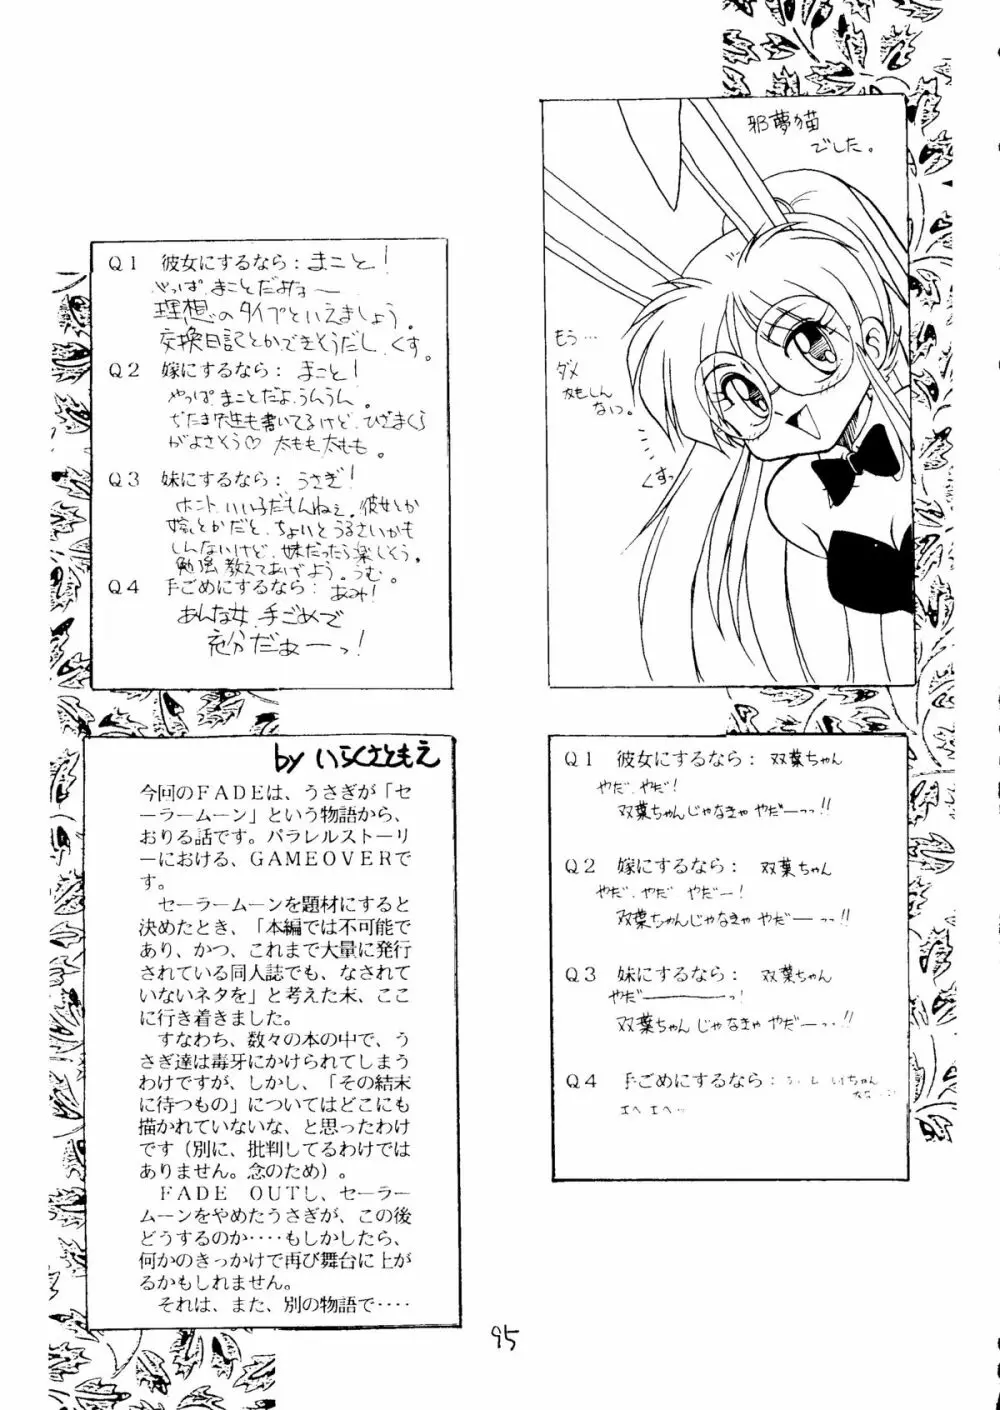 邪夢猫
でした。
もう…
ダメ
かもしんない。
くすっ
Q1 彼女にするなら：まこと!
やっぱ まことだよねー
理想のタイプといえましょう。
交換日記とかできそうだし、くす。
Q2 嫁にするなら：まこと!
やっぱ まことだよ、うんうん。
も書いてるけど、ひざまくら
がよさそう♡ 太もも太もも。
Q3 妹にするなら：うさぎ!
ホント、いい子だもんねぇ。彼女とか
嫁とかだと、ちょいとうるさいかも
しんないけど、妹だったら楽しくう。
勉強教えてあげよう。うむ。
Q4 手ごめにするなら：あみ!
あんな女、手ごめで
充分だぁーっ!
Q1 彼女にするなら：双葉ちゃん
やだ、やだ!
双葉ちゃんじゃなきゃやだーっっ!!
Q2 嫁にするなら：双葉ちゃん
やだ、やだ やだー!
双葉ちゃんじゃなきゃ やだーっっ!!
Q3 妹にするなら：双葉ちゃん
やだーーっ!
双葉ちゃんじゃなきゃ やだーっ・!!
Q4 手ごめにするなら：
エヘエヘ…
by いらくさともえ
今回のＦＡＤＥは、うさぎが「セ
ーラームーン」という物語から、
おりる話です。パラレルストーリ
ーにおける、ＧＡＭＥＯＶＥＲで
す。
セーラームーンを題材にすると
決めたとき、「本編では不可能で
あり、かつ、これまで大量に発行
されている同人誌でも、なされて
いないネタを」と考えた末、ここ
に行き着きました。
すなわち、数々の本の中で、う
さぎ達は毒牙にかけられてしまう
わけですが、しかし、「その結末
に待つもの」についてはどこにも
描かれていないな、と思ったわけ
です（別に、批判してるわけでは
ありません。念のため）。
ＦＡＤＥ　ＯＵＴし、セーラー
ムーンをやめたうさぎが、この後
どうするのか‥‥もしかしたら、
何かのきっかけで再び舞台に上が
るかもしれません。
それは、また、別の物語で‥‥
95